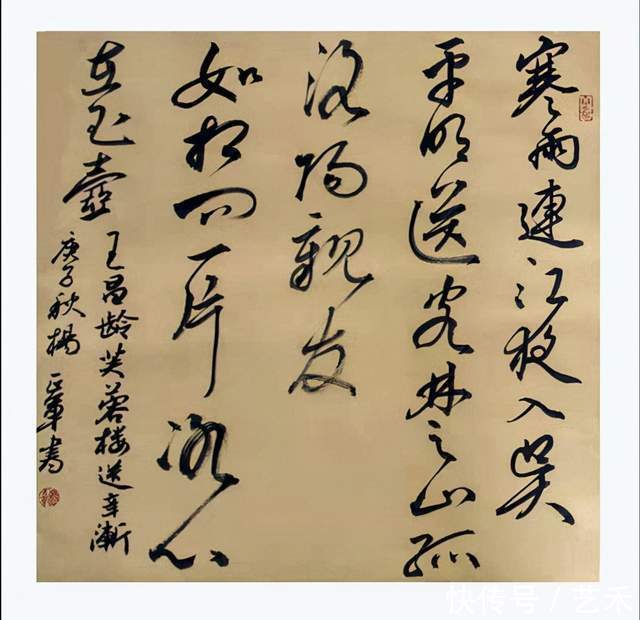 寒雨連江夜入吳
平明送客楚山孤
洛陽親友
如相问一片冰心
在玉壺
王昌龄芙蓉楼送辛漸
庚子秋楊書
快传号 / 艺禾